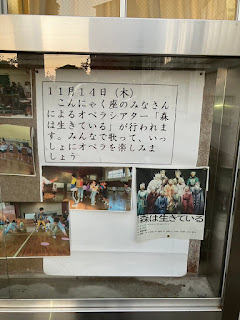 11月14日（木）
こんにゃく座のみなさん
によるオペラシアター「森
は生きている」が行われま
す。みんなで歌って、いっ
しょにオペラを楽しみま
しょう
森は生きている